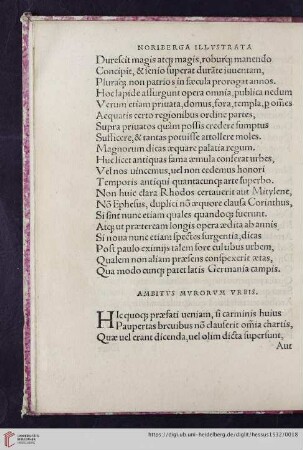 NORIBERGA ILLVSTRATA
Durescit magis atq; magis, roburq; manendo
Concipit, & senio superat durãte iuuentam,
Pluraq; non patrios in sæcula prorogat annos.
Hoc lapide assurgunt opera omnia, publica nedum
Verum etiam priuata, domus, fora, templa, p omẽs
Aequatis certo regionibus ordine partes,
Supra priuatos quàm possis credere sumptus
Sufficere, & tantas potuisse attollere moles.
Magnorum dicas æquare palatia regum.
Huc licet antiquas fama æmula conferat urbes,
Vel nos uincemus, uel non cedemus honori
Temporis antiqui quantacunq; arte superbo.
Non huic clara Rhodos certauerit aut Mitylene,
Nõ Ephesus, duplici nõ æquore clausa Corinthus,
Si sint nunc etiam quales quandoq; fuerunt.
Atq; ut prætereàm longis opera ædita ab annis
Si noua nunc etiam spectes surgentia, dicas
Post paulo eximijs talem fore cultibus urbem,
Qualem non aliam præsens conspexerit ætas,
Qua modo cunq; patet latis Germania campis.
AMBITVS MVRORVM VRBIS.
HIc quoq; præfati ueniam, si carminis huius
Paupertas breuibus nõ clauserit omnia chartis,
Quæ uel erant dicenda, uel olim dicta supersunt,
Aut
https://digi.ub.uni-heidelberg.de/diglit/hessus1532/0018